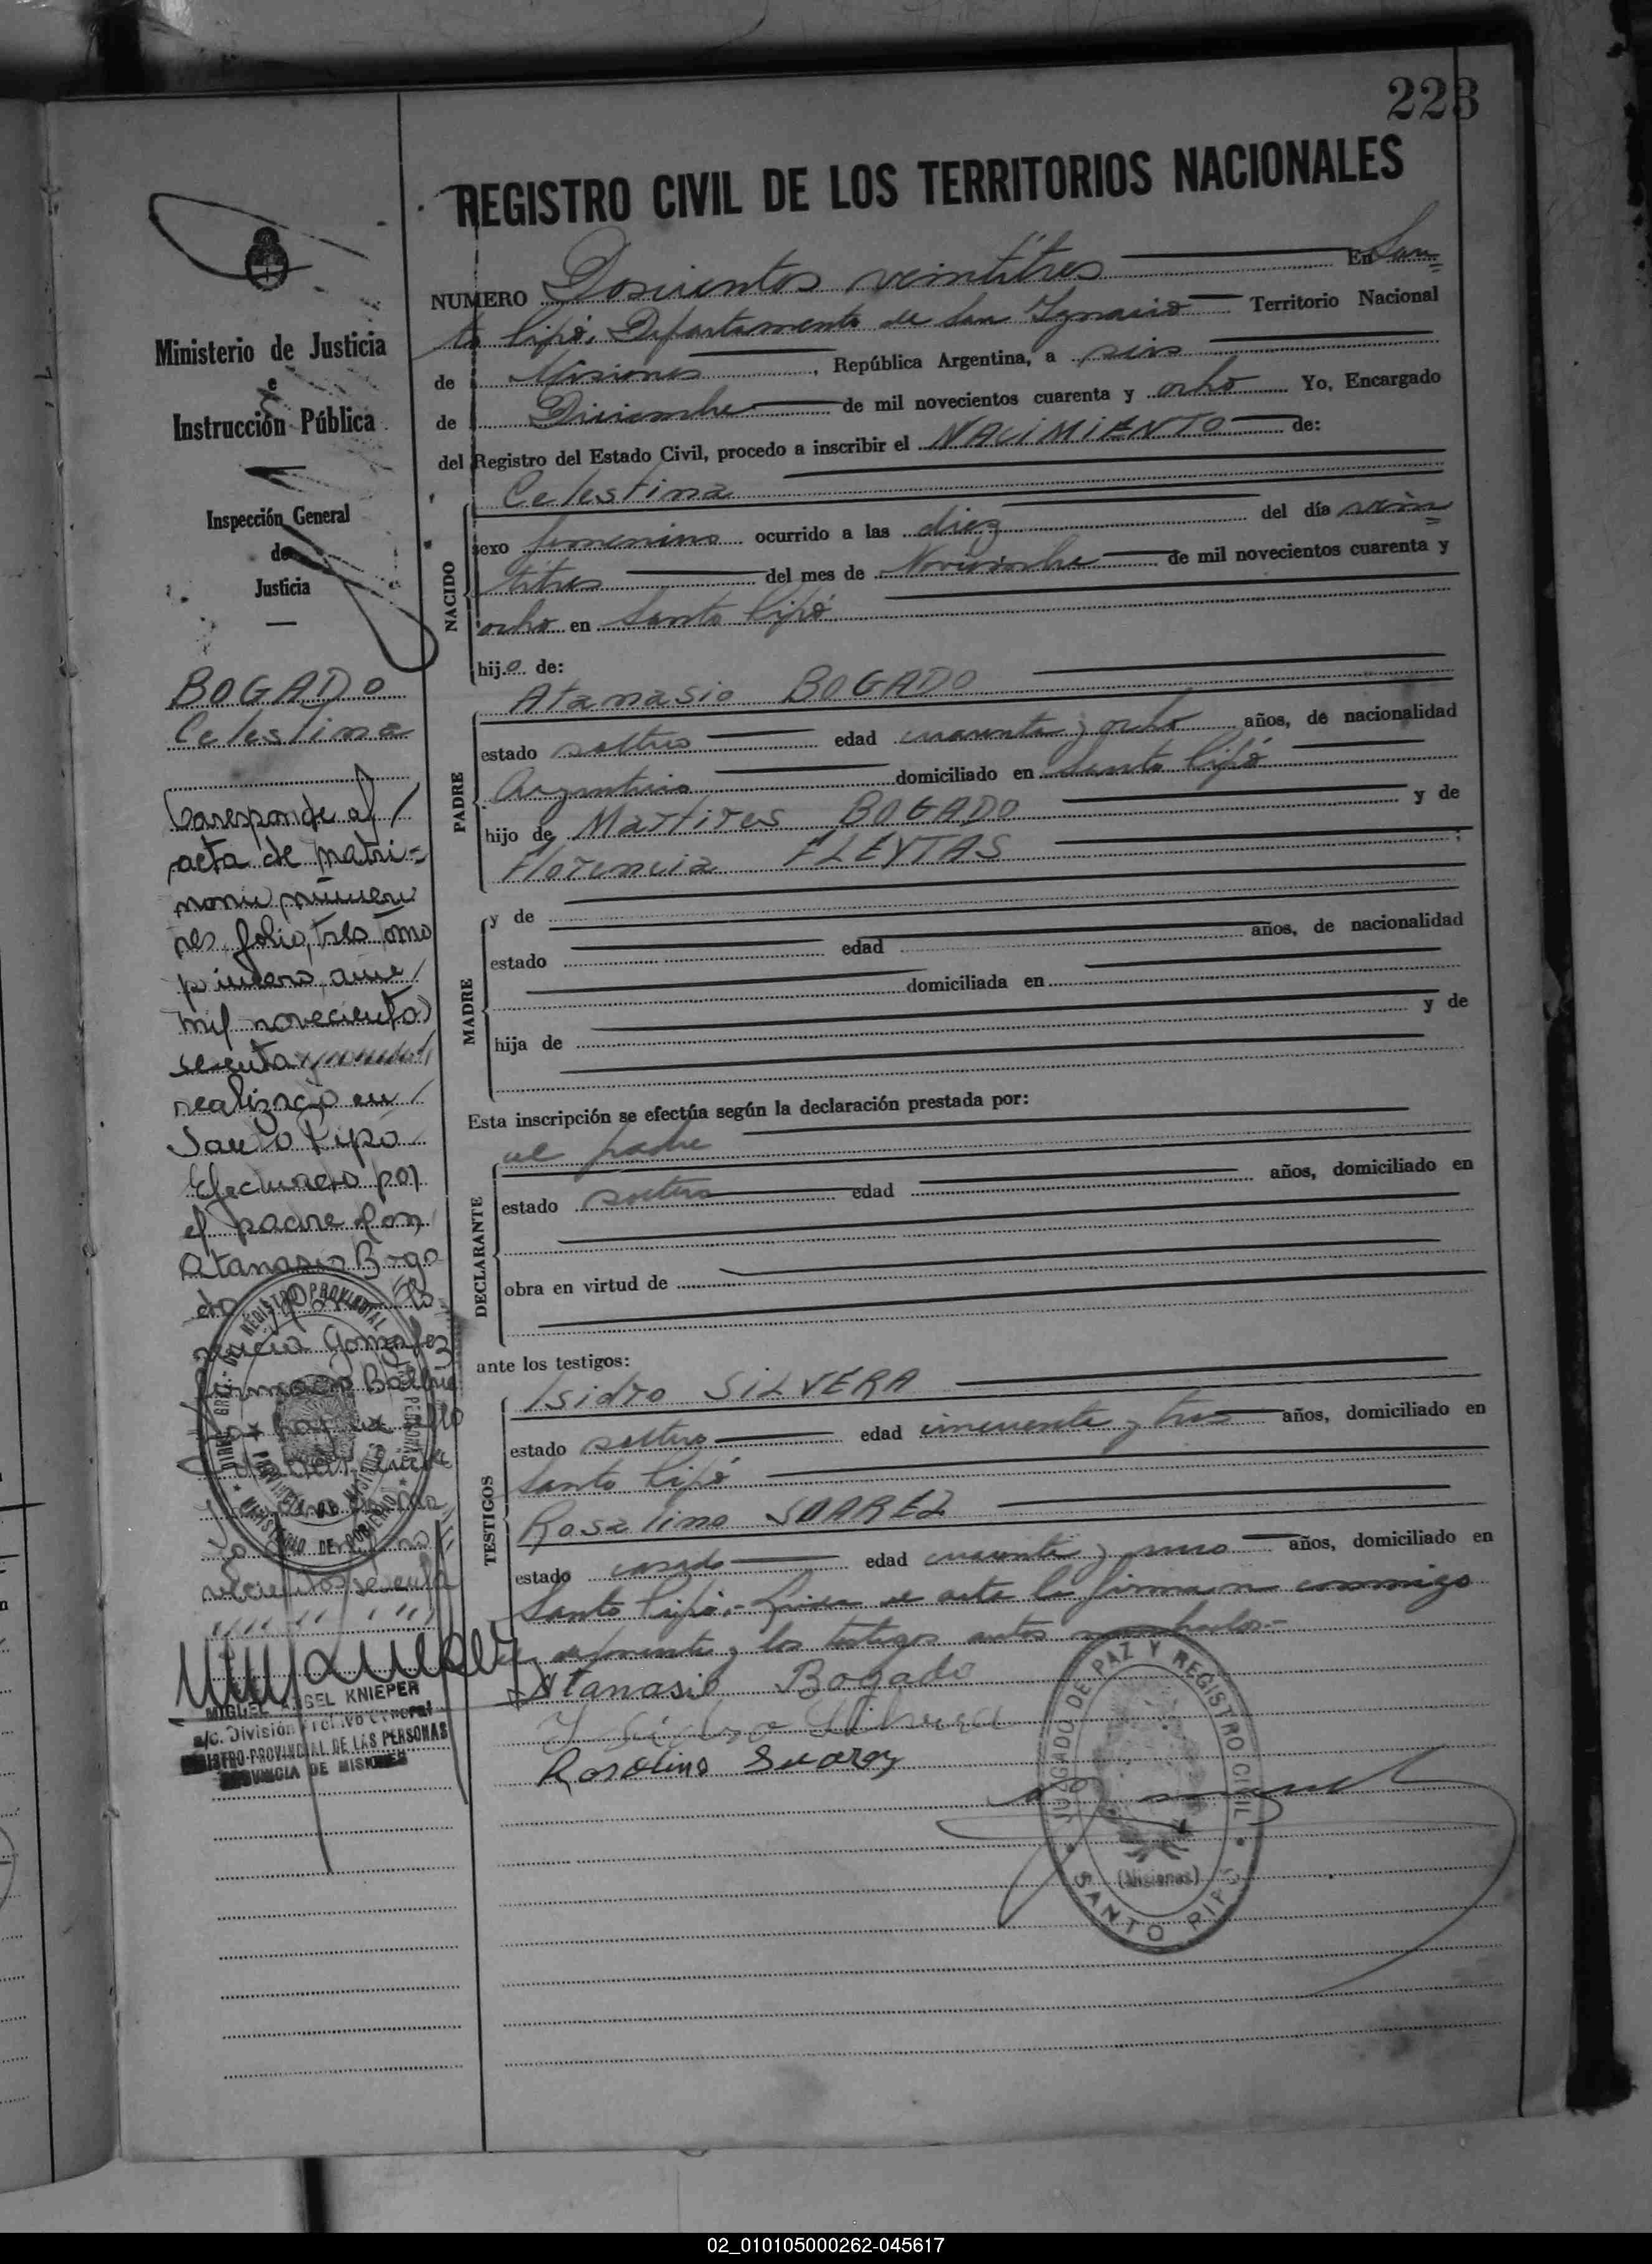 223
REGISTRO CIVIL DE LOS TERRITORIOS NACIONALES
NUMERO Dosientos veintitres En San=
to Pipó, Departamento de San Ignacio Territorio Nacional
de Misiones, República Argentina, a seis
de Diciembre de mil novecientos cuarenta y ocho Yo, Encargado
del Registro del Estado Civil, procedo a inscribir el NACIMIENTO de:
NACIDO
Celestina
sexo femenino ocurrido a las diez del día vein=
titres del mes de Noviembre de mil novecientos cuarenta y
ocho en Santo Pipó
hijo de:
PADRE
Atanasio BOGADO
estado soltero edad cuarenta y ocho años, de nacionalidad
Argentino domiciliado en Santo Pipó
hijo de Martires BOGADO y de
Florencia FLEYTAS ;
MADRE
y de
estado edad años, de nacionalidad
domiciliada en
hija de y de
Esta inscripción se efectúa según la declaración prestada por:
DECLARANTE
el padre
estado soltero edad años, domiciliado en
obra en virtud de
ante los testigos:
TESTIGOS
Isidro SILVERA
estado soltero edad cincuenta y tres años, domiciliado en
Santo Pipó
Rosalino SUAREZ
estado casado edad cuarenta y uno años, domiciliado en
Santo Pipó.- Leida el acta la firman conmigo
y los testigos antes nombrados.-
Atanasio Bogado
Isidro Silvera
Rosolino Suarez
JUZGADO DE PAZ Y REGISTRO CIVIL
(Misiones)
SANTO PIPÓ
Ministerio de Justicia
e
Instrucción Pública
Inspección General
de
Justicia
BOGADO
Celestina
Corresponde al
acta de matri=
monio número
tres folio, tres tomo
primero, año
mil novecientos
sesenta
realizado en
Santo Pipó
Efectuado por
el padre don
Atanasio Boga
do
Gomez
REGISTRO PROVINCIAL
PROVINCIA DE MISIONES
MINISTERIO DE GOBIERNO
MIGUEL ANGEL KNIEPER
a/c. División Archivo General
REGISTRO PROVINCIAL DE LAS PERSONAS
PROVINCIA DE MISIONES
02_010105000262-045617